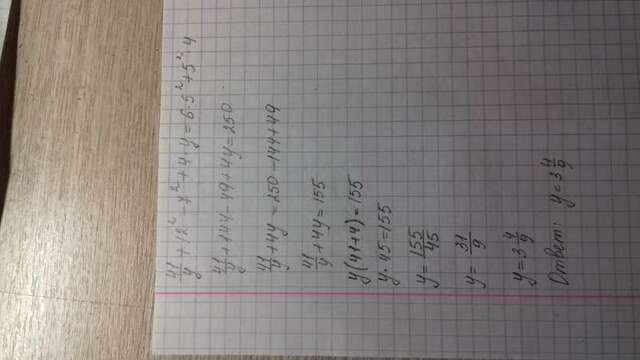 41/y + 12² - 7² + 4 · y = 6 · 5² + 5² · 4
41/y + 144 - 49 + 4y = 250
41/y + 4y = 250 - 144 + 49
41/y + 4y = 155
y(41+4) = 155
y · 45 = 155
y = 155/45
y = 31/9
y = 3 4/9
Ответ: y = 3 4/9